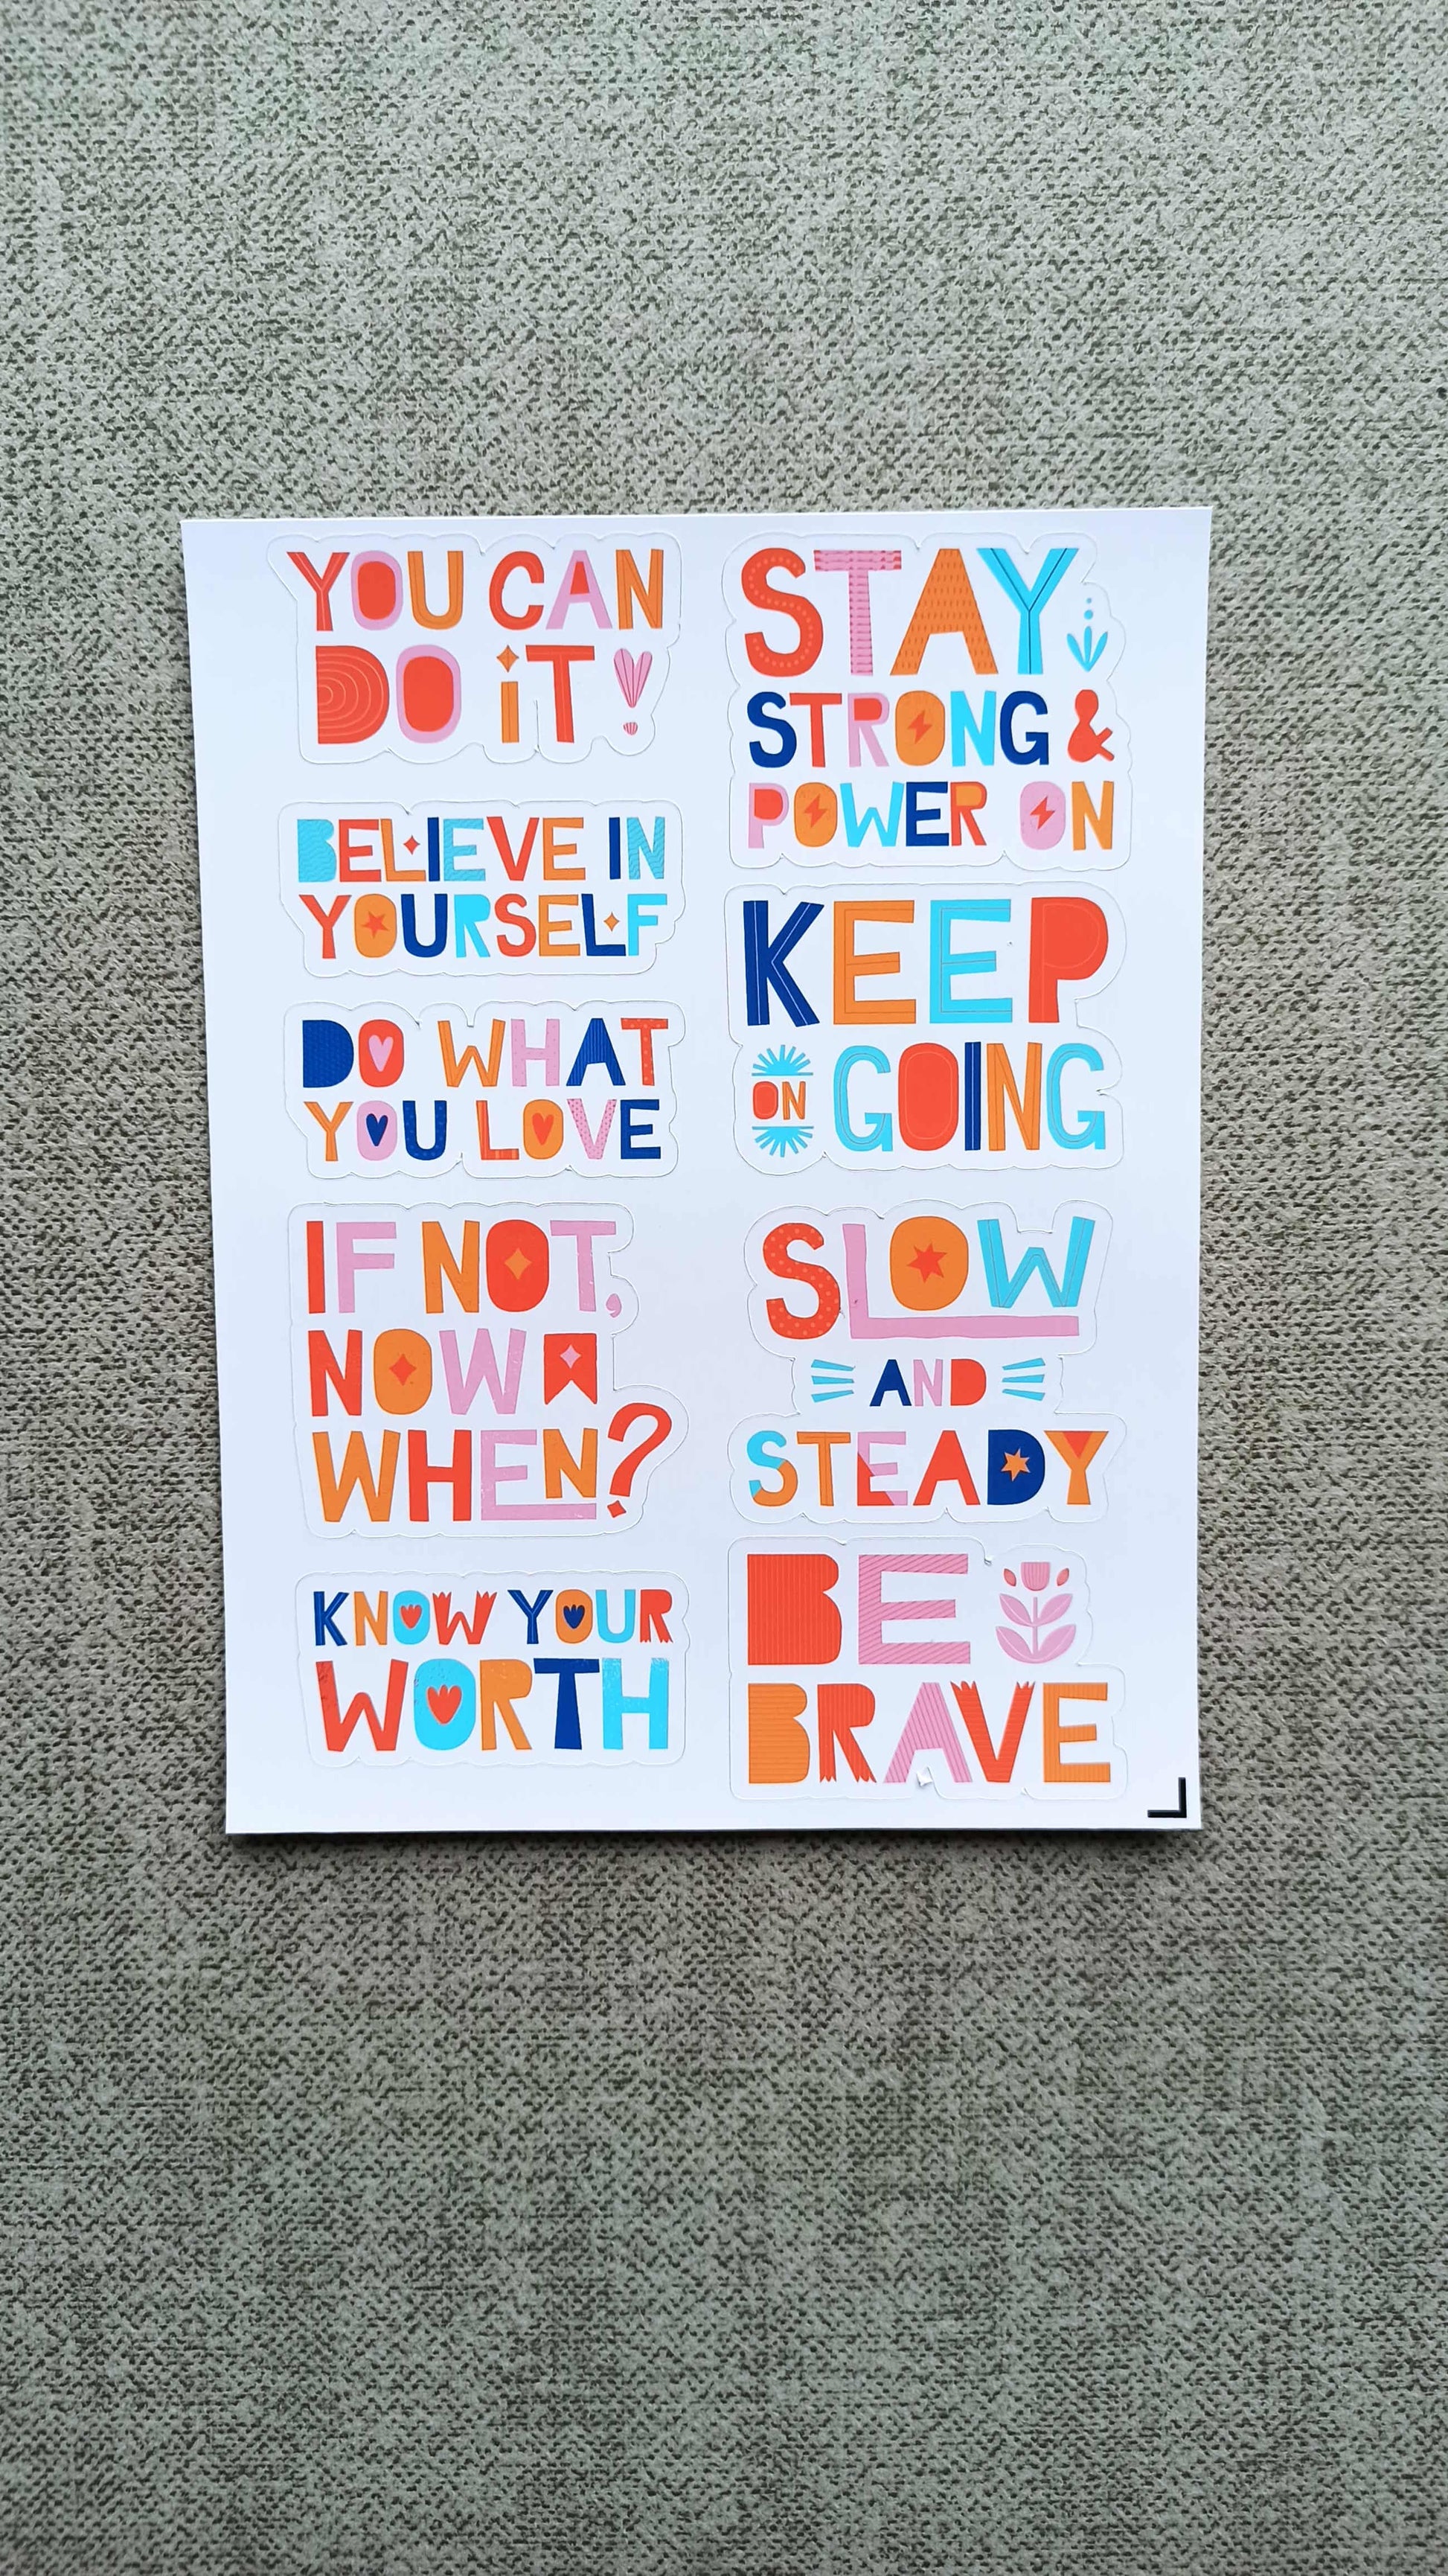 YOU CAN
DO iT!
BELIEVE IN
YOURSELF
DO WHAT
YOU LOVE
IF NOT,
NOW
WHEN?
KNOW YOUR
WORTH
STAY
STRONG &
POWER ON
KEEP
ON GOING
SLOW
AND
STEADY
BE
BRAVE